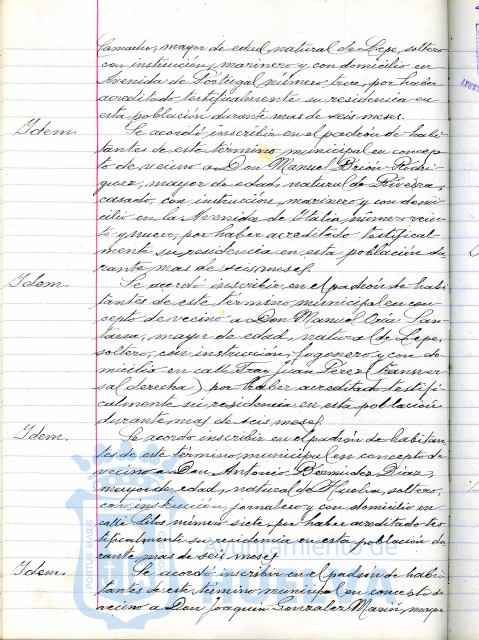 Camacho, mayor de edad, natural de Lepe, soltero
con instrucción, marinero y con domicilio en
Avenida de Portugal número trece, por haber
acreditado testificalmente su residencia en
esta población durante mas de seis meses.
Idem. Se acordó inscribir en el padrón de habi-
tantes de este término municipal en concep-
to de vecino a Don Manuel Brión Rodri-
guez, mayor de edad, natural de Riveira,
casado, con instrucción, marinero y con domi-
cilio en la Avenida de Italia, número vein-
te y nueve, por haber acreditado testifical-
mente su residencia en esta población du-
rante mas de seis meses.
Idem. Se acordó inscribir en el padrón de habi-
tantes de este término municipal en con-
cepto de vecino a Don Manuel Oria San-
tana, mayor de edad, natural de Lepe,
soltero, con instrucción, fogonero y con do-
micilio en calle Fray Juan Pérez (transver-
sal derecha) por haber acreditado testifi-
calmente su residencia en esta población
durante mas de seis meses.
Idem. Se acordó inscribir en el padrón de habitan-
tes de este término municipal en concepto de
vecino a Don Antonio Bermudez Diaz,
mayor de edad, natural de Huelva, soltero,
con instrucción, jornalero y con domicilio en
calle Silos número siete, por haber acreditado tes-
tificalmente su residencia en esta población du-
rante mas de seis meses.
Idem. Se acordó inscribir en el padrón de habi-
tantes de este término municipal en concepto de
vecino a Don Joaquín Gonzalez Marin, mayor
PORTUS MARIS